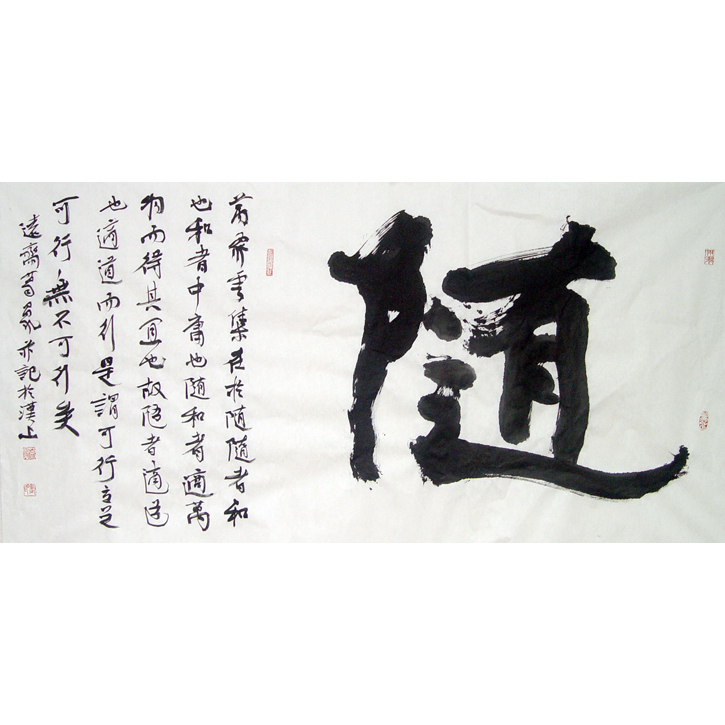 隨
雲集在於隨隨者和
也和者中庸也隨和者適萬
物而得其宜也故隨者適道
也適道而行是謂可行
可行無不可行矣
遠齋并記於漢上